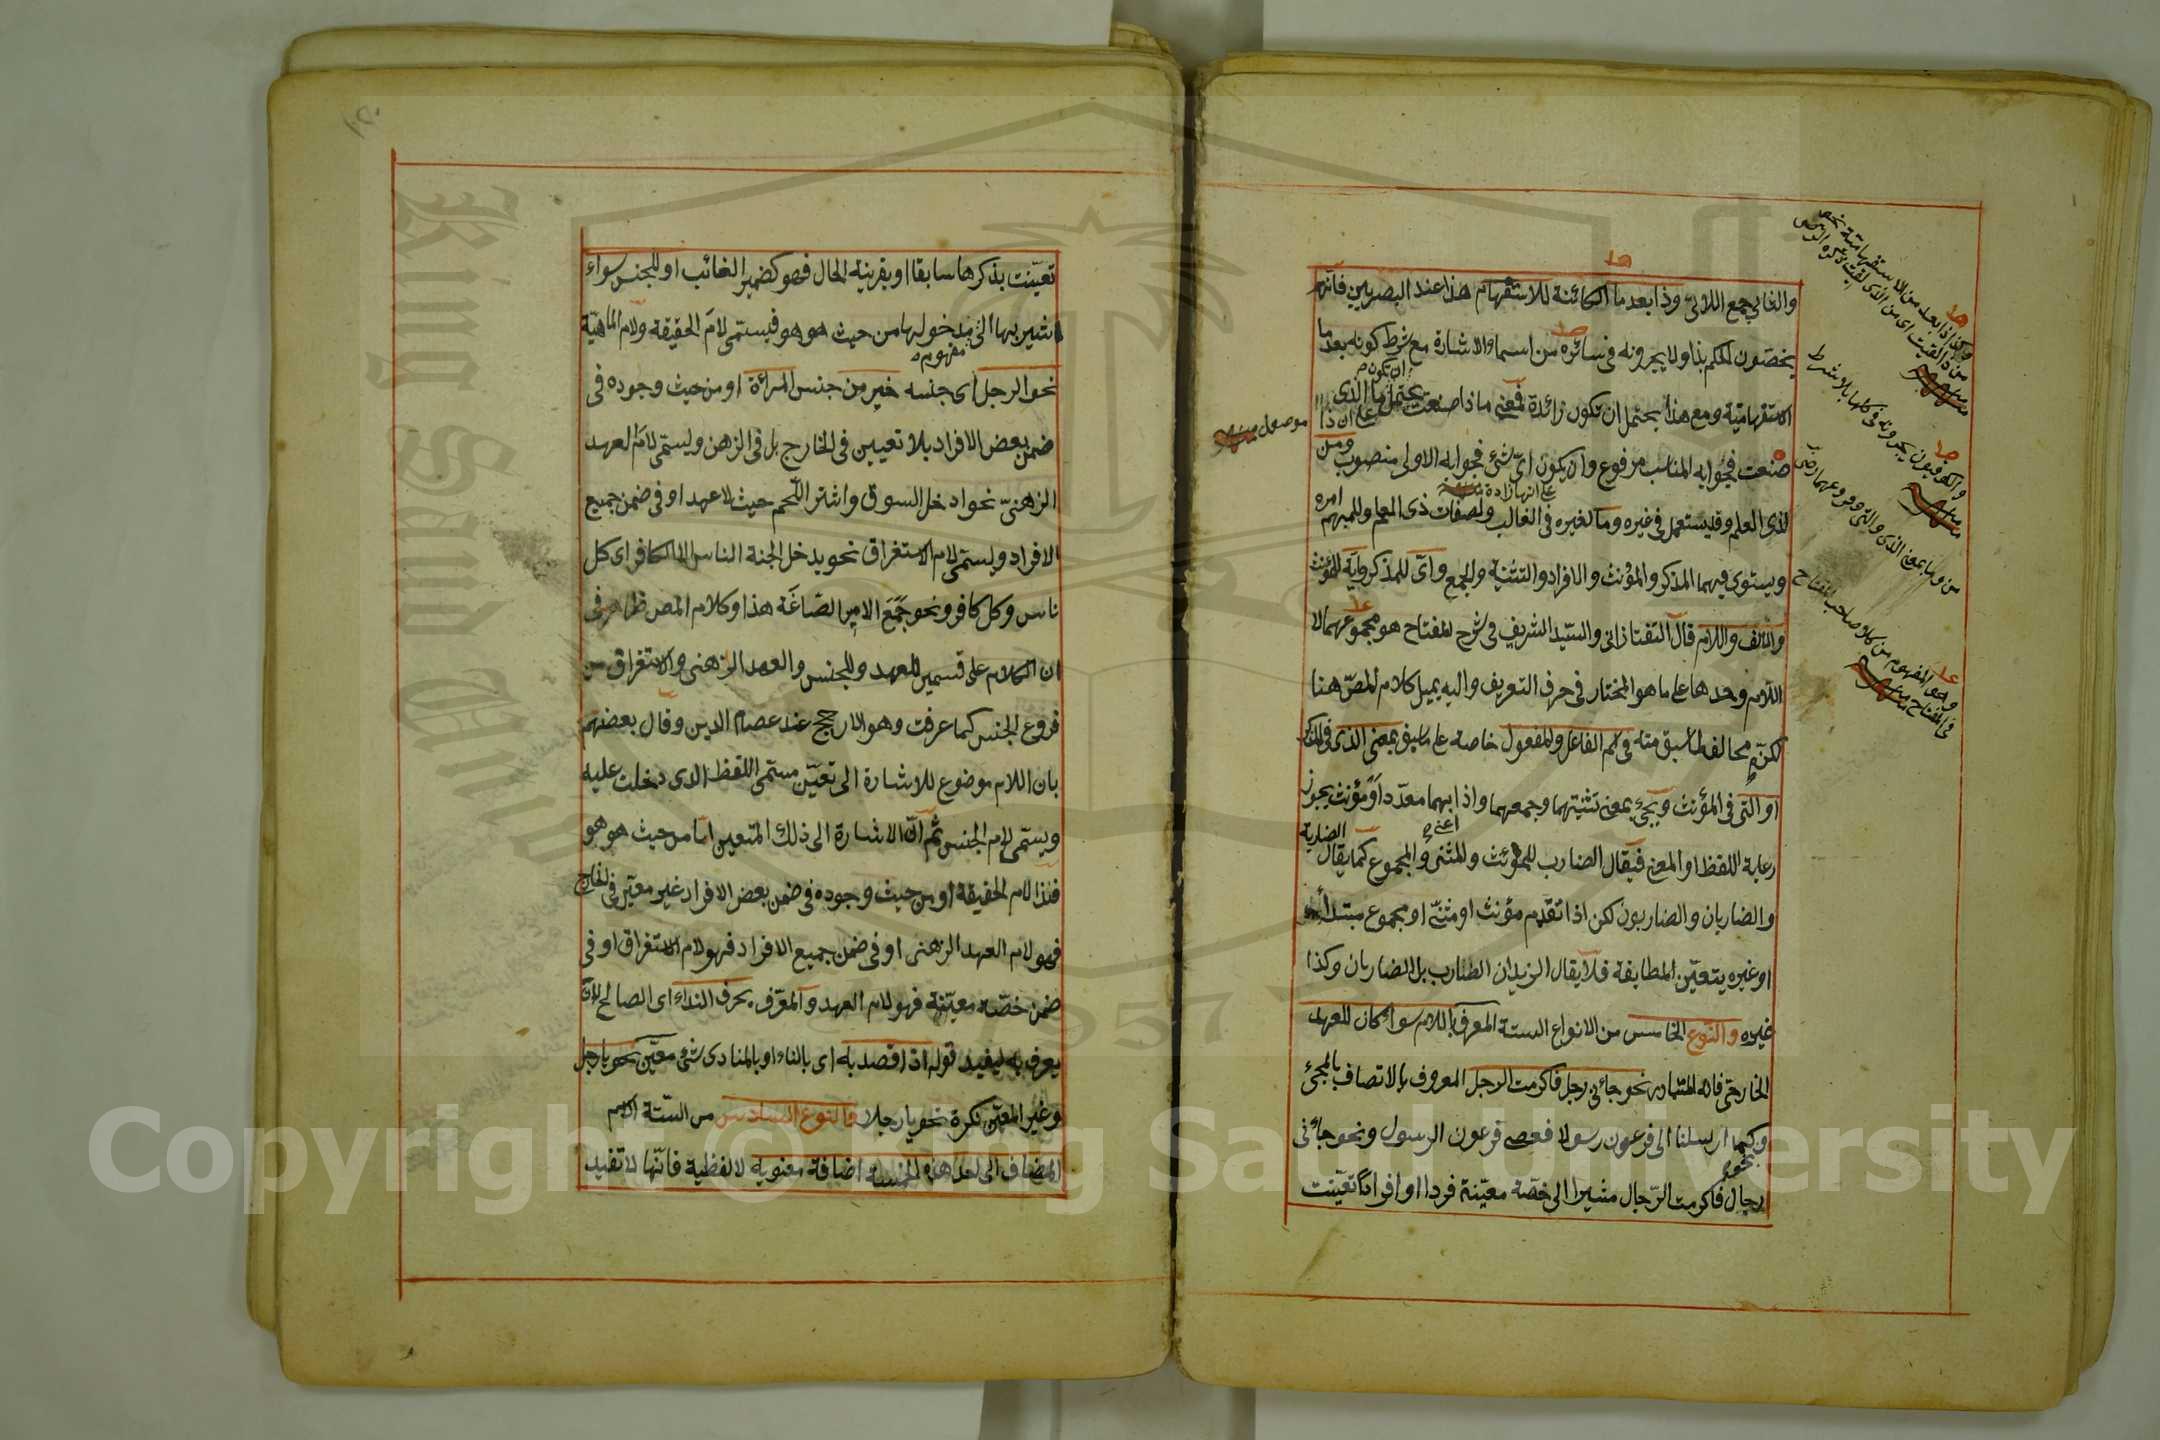 والثاني جمع اللائي وذا بعد ما الكائنة للاستفهام هذا عند البصريين فانهم
يخصون الحكم بذا ولا يجرونه في سائره من اسماء الاشارة مع شرط كونه بعد ما
الاستفهامية ومع هذا يحتمل ان تكون زائدة فمعنى ماذا صنعت يحتمل ما الذي
صنعت فجوابه المناسب مرفوع وان يكون اي شئ فجوابه الاولى منصوب ومن
لذي العلم وقد يستعمل في غيره وما لغيره في الغالب ولصفات ذي العلم وللمبهم امره
ويستوى فيهما المذكر والمؤنث والافراد والتثنية والجمع واي للمذكر واية للمؤنث
والالف واللام قال التفتازاني والسيد الشريف في شرح المفتاح هو مجموعهما لا
اللام وحدها على ما هو المختار في حرف التعريف واليه يميل كلام المص هنا
لكنه مخالف لما سبق منه في اسم الفاعل والمفعول خاصة على ما سبق بمعنى الذي في المذكر
او التي في المؤنث ويجئ بمعنى تثنيتهما وجمعهما واذا بهما معددا او مؤنث يجوز
رعاية اللفظ او المعنى فيقال الضارب للمؤنث وللمثنى والمجموع كما يقال الضاربة
والضاربان والضاربون لكن اذا تقدم مؤنث او مثنى او مجموع مبتدأ
او غيره يتعين المطابقة فلا يقال الزيدان الضارب بل الضاربان وكذا
غيره والنوع الخامس من الانواع الستة المعرف باللام سواء كان للعهد
الخارجي فانه المتبادر نحو جاءني رجل فاكرمت الرجل المعروف بالاتصاف بالمجئ
وكما ارسلنا الى فرعون رسولا فعصى فرعون الرسول ونحو جاءني
رجال فاكرمت الرجال مشيرا الى حصة معينة فردا او افرادا تعينت
نحو
موصول منه
من وما بمعنى الذي والتي وفروعهما
وهو المفهوم من كلام صاحب المفتاح
في المفتاح منه
تعينت بذكرها سابقا او بقرينة الحال فهو كضمير الغائب او للجنس سواء
اشير بها الى مدخولها من حيث هو هو فيسمى لام الحقيقة ولام الماهية
مفهوم
نحو الرجل اى جنسه خير من جنس المرأة او من حيث وجوده في
ضمن بعض الافراد بلا تعيين في الخارج بل في الذهن ويسمى لام العهد
الذهني نحو ادخل السوق واشتر اللحم حيث لا عهد او في ضمن جميع
الافراد ويسمى لام الاستغراق نحو يدخل الجنة الناس الا الكافر اى كل
ناس وكل كافر ونحو جمع الامير الصاغة هذا وكلام المص ظاهر في
ان الكلام على قسمين للعهد وللجنس والعهد الذهني والاستغراق من
فروع الجنس كما عرفت وهو الارجح عند عصام الدين وقال بعضهم
بان اللام موضوع للاشارة الى تعين مسمى اللفظ الذى دخلت عليه
ويسمى لام الجنس ثم ان الاشارة الى ذلك المتعين اما من حيث هو هو
فذا لام الحقيقة او من حيث وجوده في ضمن بعض الافراد غير معين في الخارج
فهو لام العهد الذهنى او في ضمن جميع الافراد فهو لام الاستغراق او في
ضمن حصة معينة فهو لام العهد والمعرف بحرف النداء اى الصالح لان
يعرف به ليفيد قوله اذا قصد به اى بالنداء او بالمنادى شئ معين نحو يا رجل
وغير المعين نكرة نحو يا رجلا والنوع السادس من الستة الاسم
المضاف الى احد هذه الخمسة اضافة معنوية لا لفظية فانها لا تفيد
King Saud University
1957
Copyright © King Saud University